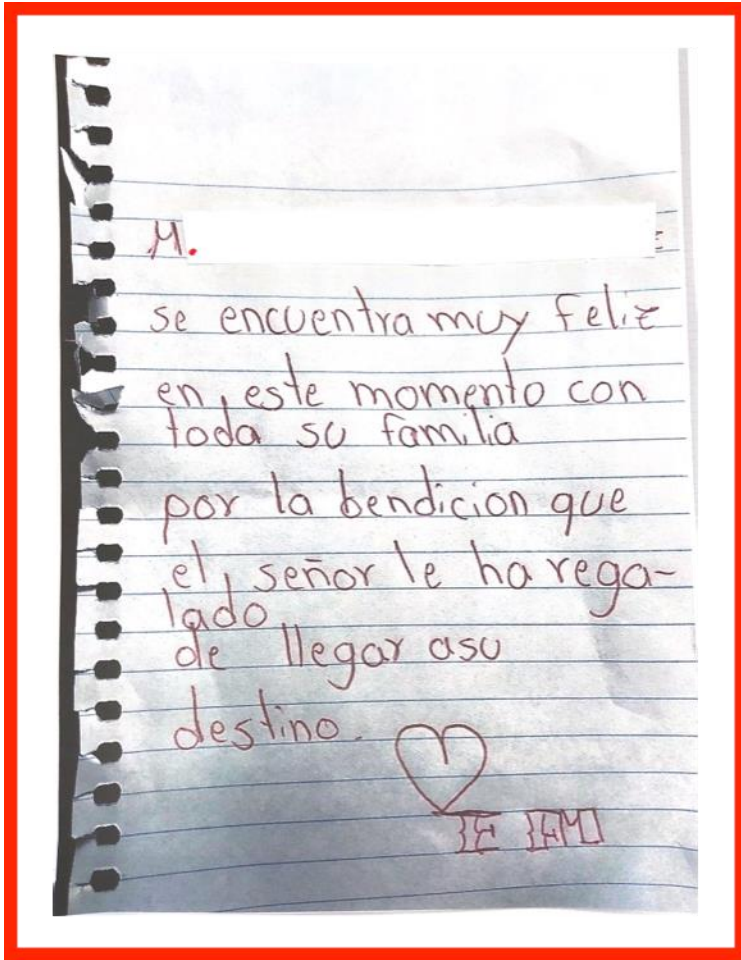 M.
se encuentra muy feliz
en este momento con
toda su familia
por la bendicion que
el señor le ha rega-
lado
de llegar asu
destino.